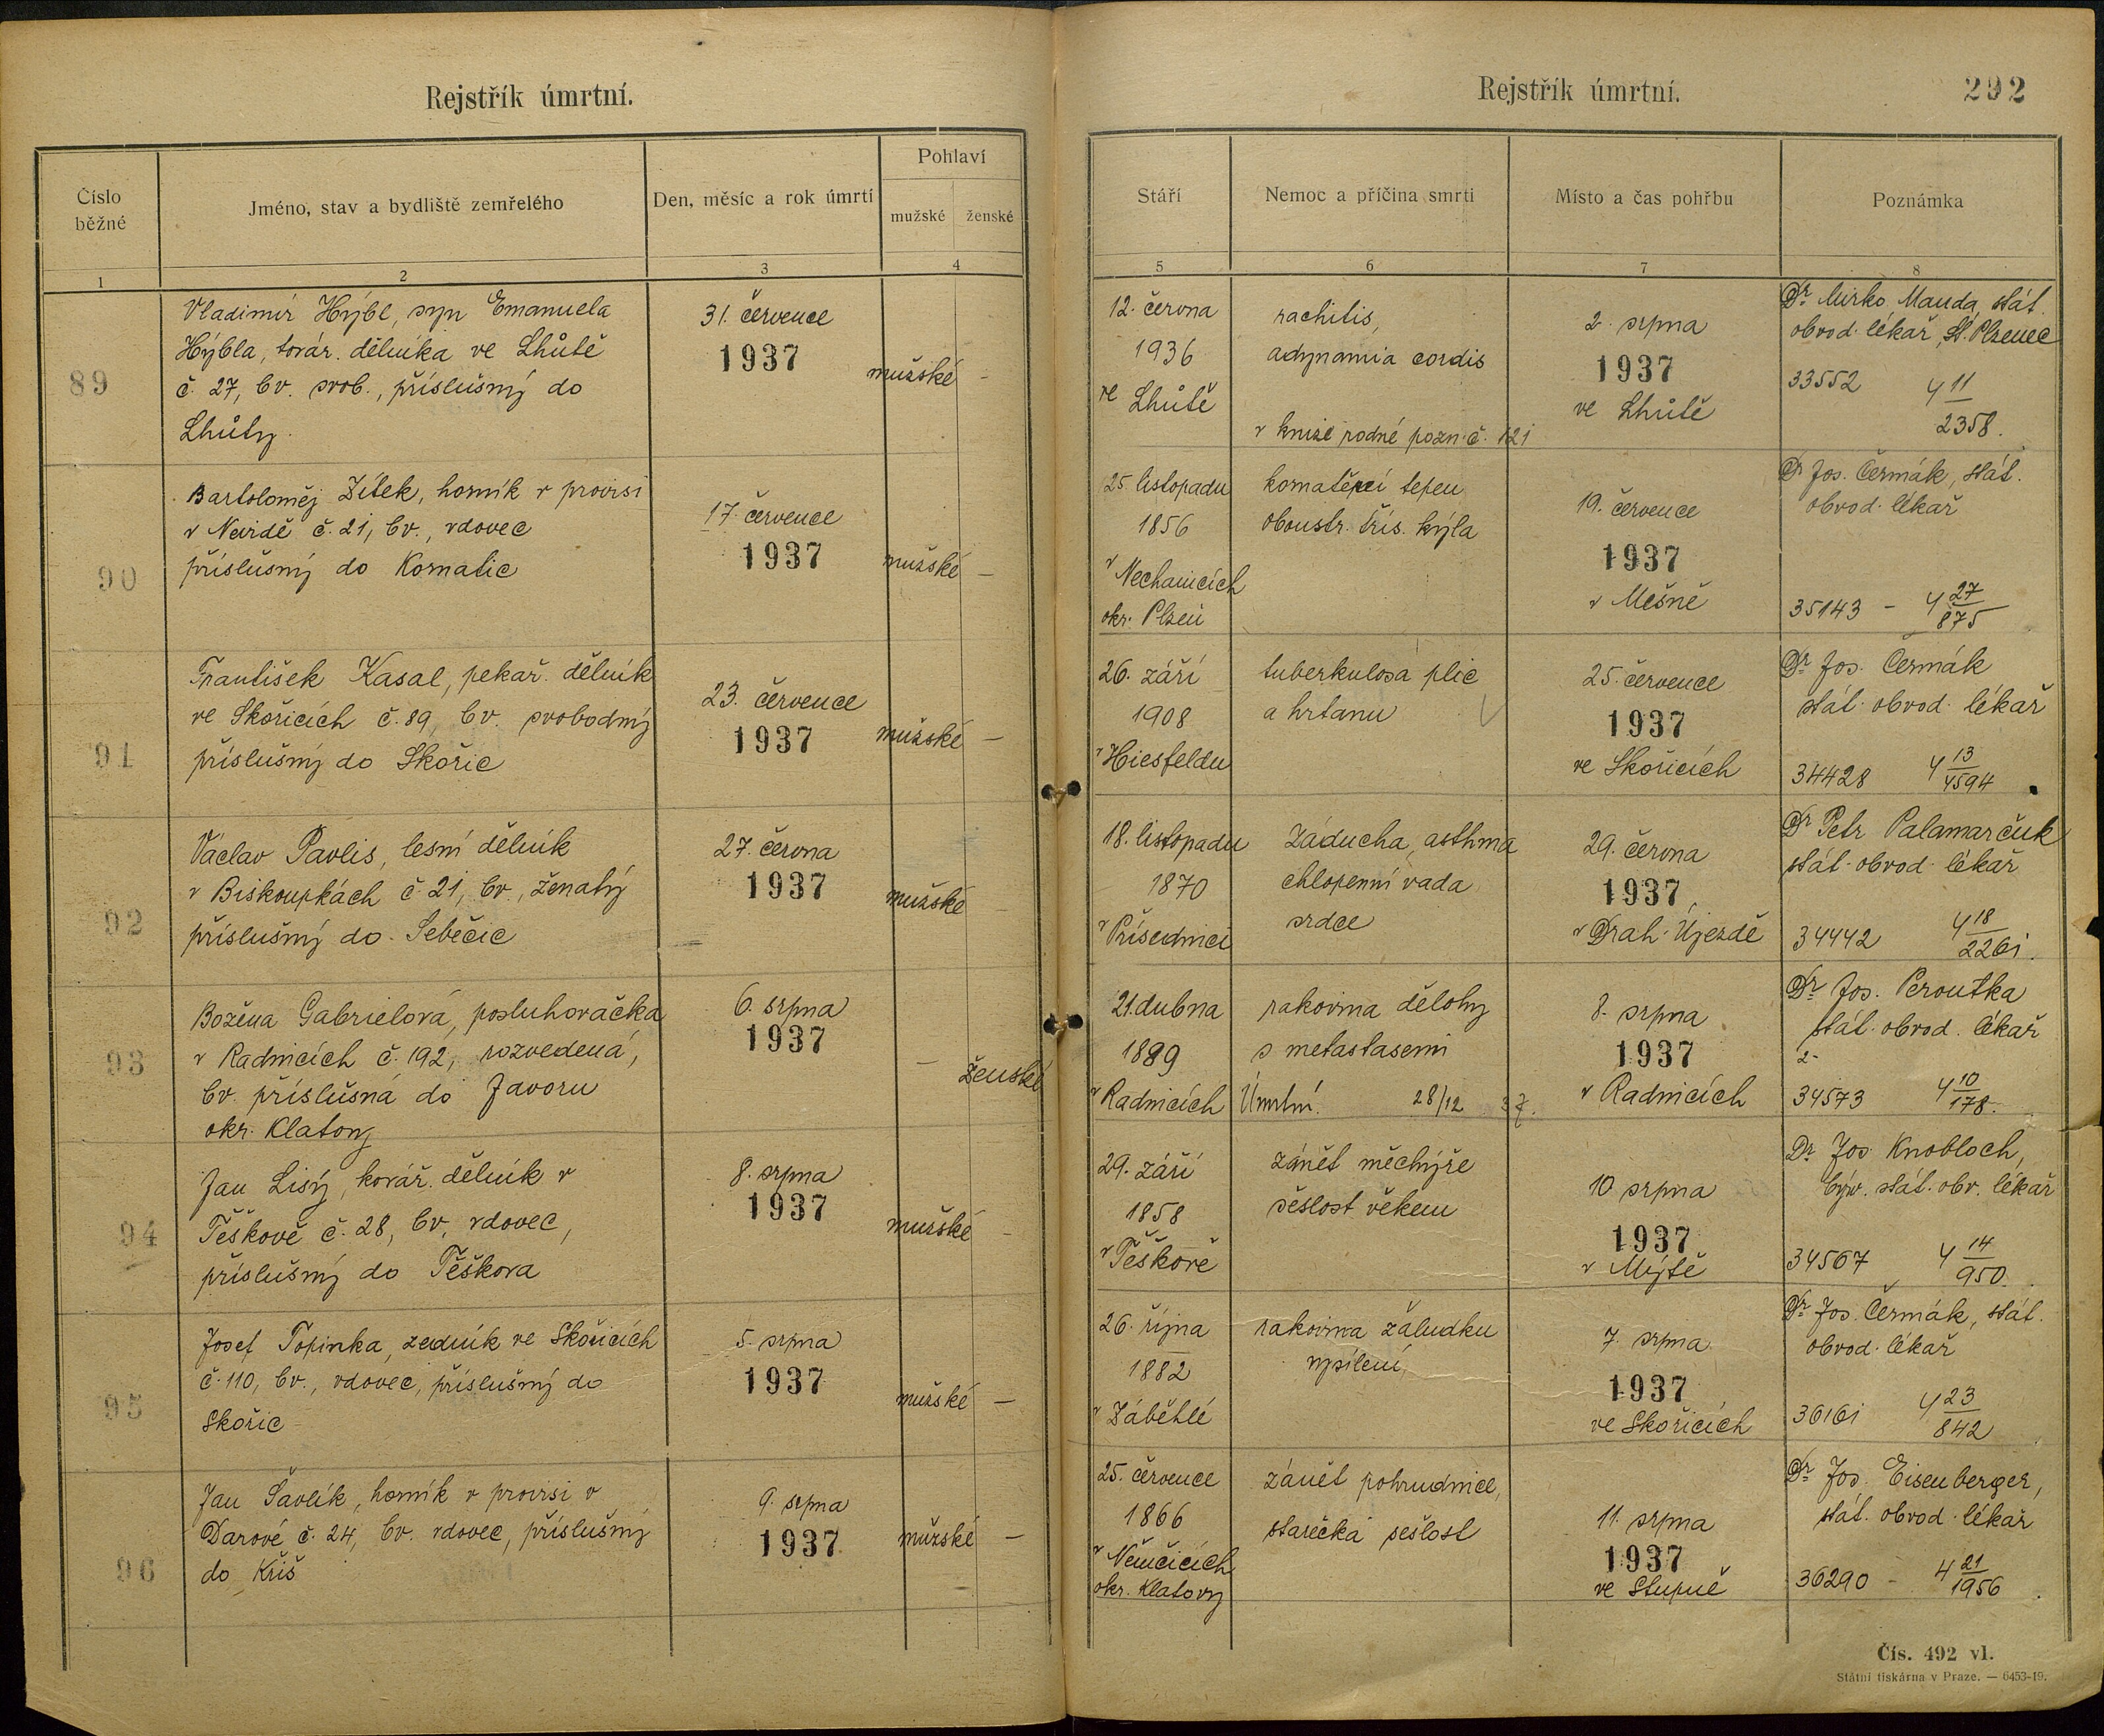 Rejstřík úmrtní.
Číslo běžné
Jméno, stav a bydliště zemřelého
Den, měsíc a rok úmrtí
Pohlaví
mužské
ženské
1
2
3
4
Rejstřík úmrtní.
292
Stáří
Nemoc a příčina smrti
Místo a čas pohřbu
Poznámka
5
6
7
8
89
Vladimír Hýbl, syn Emanuela
Hýbla, továr. dělníka ve Lhůtě
č. 27, bv. svob., příslušný do
Lhůty.
31. července
1937
mužské -
12. června
1936
ve Lhůtě
rachitis,
adynamia cordis
v knize rodné pozn. č. 121
2. srpna
1937
ve Lhůtě
Dr. Mirko Mauda, stát.
obvod. lékař, St. Plzenec
33552 4 11
2358.
90
Bartoloměj Zítek, horník v provisi
v Nevidě č. 21, bv., vdovec
příslušný do Kornatic
17. července
1937
mužské -
25. listopadu
1856
v Nechanicích
okr. Plzeň
kornatění tepen
oboustr. třís. kýla
19. července
1937
v Mešně
Dr. Jos. Čermák, stát.
obvod. lékař
35143 - 4 27
875
91
František Kasal, pekař. dělník
ve Skořicích č. 89, bv. svobodný
příslušný do Skořic
23. července
1937
mužské -
26. září
1908
v Hiesfeldu
tuberkulosa plic
a hrtanu
25. července
1937
ve Skořicích
Dr. Jos. Čermák
stát. obvod. lékař
34428 4 13
4594
92
Václav Pavlis, lesní dělník
v Biskoupkách č. 21, bv., ženatý
příslušný do Sebečic
27. června
1937
mužské
18. listopadu
1870
v Přísednici
Záducha, asthma
chlopenní vada
srdce
29. června
1937
v Drah. Újezdě
Dr. Petr Palamarčuk
stát. obvod. lékař
34442 4 18
2261.
93
Božena Gabrielová, posluhovačka
v Radnicích č. 192, rozvedená,
bv. příslušná do Javoru
okr. Klatovy
6. srpna
1937
- ženské
21. dubna
1889
v Radnicích
rakovina dělohy
s metastasemi
Úmrtní. 28/12 37.
8. srpna
1937
v Radnicích
Dr. Jos. Peroutka
stát. obvod. lékař
2-
34573 4 10
178.
94
Jan Lisý, kovář. dělník v
Těškově č. 28, bv. vdovec,
příslušný do Těškova
8. srpna
1937
mužské -
29. září
1858
v Těškově
zánět měchýře
sešlost věkem
10 srpna
1937
v Mýtě
Dr. Jos. Knobloch,
býv. stát. obv. lékař
34567 4 14
950.
95
Josef Topinka, zedník ve Skořicích
č. 110, bv., vdovec, příslušný do
Skořic
5. srpna
1937
mužské -
26. října
1882
v Záběhlé
rakovina žaludku
vysílení,
7. srpna
1937
ve Skořicích
Dr. Jos. Čermák, stát.
obvod. lékař
36161 4 23
842
96
Jan Šavlík, horník v provisi v
Darové č. 24, bv. vdovec, příslušný
do Kříš
9. srpna
1937
mužské -
25. července
1866
v Němčicích
okr. Klatovy
zánět pohrudnice,
stařecká sešlost
11. srpna
1937
ve Stupně
Dr. Jos. Eisenberger,
stát. obvod. lékař
36290 - 4 21
1956
Čís. 492 vl.
Státní tiskárna v Praze. — 6453-19.